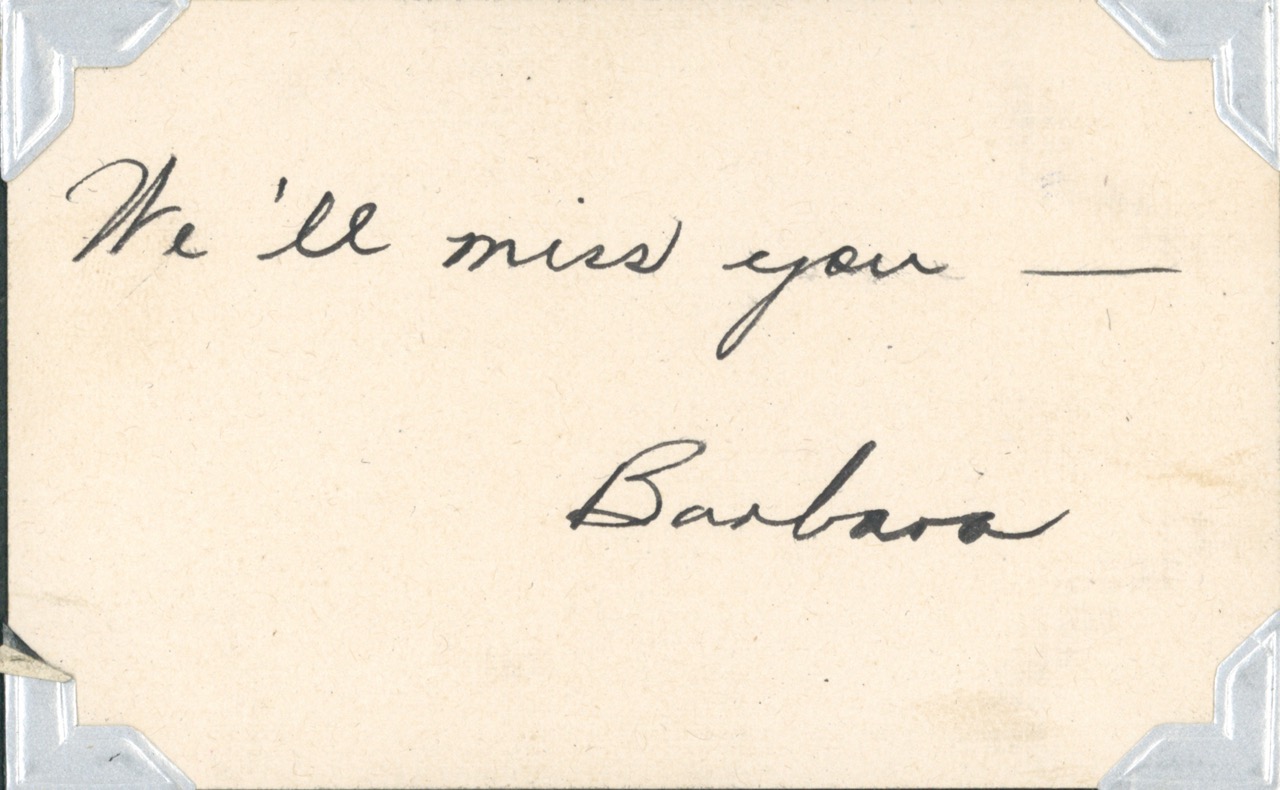 We'll miss you —
Barbara